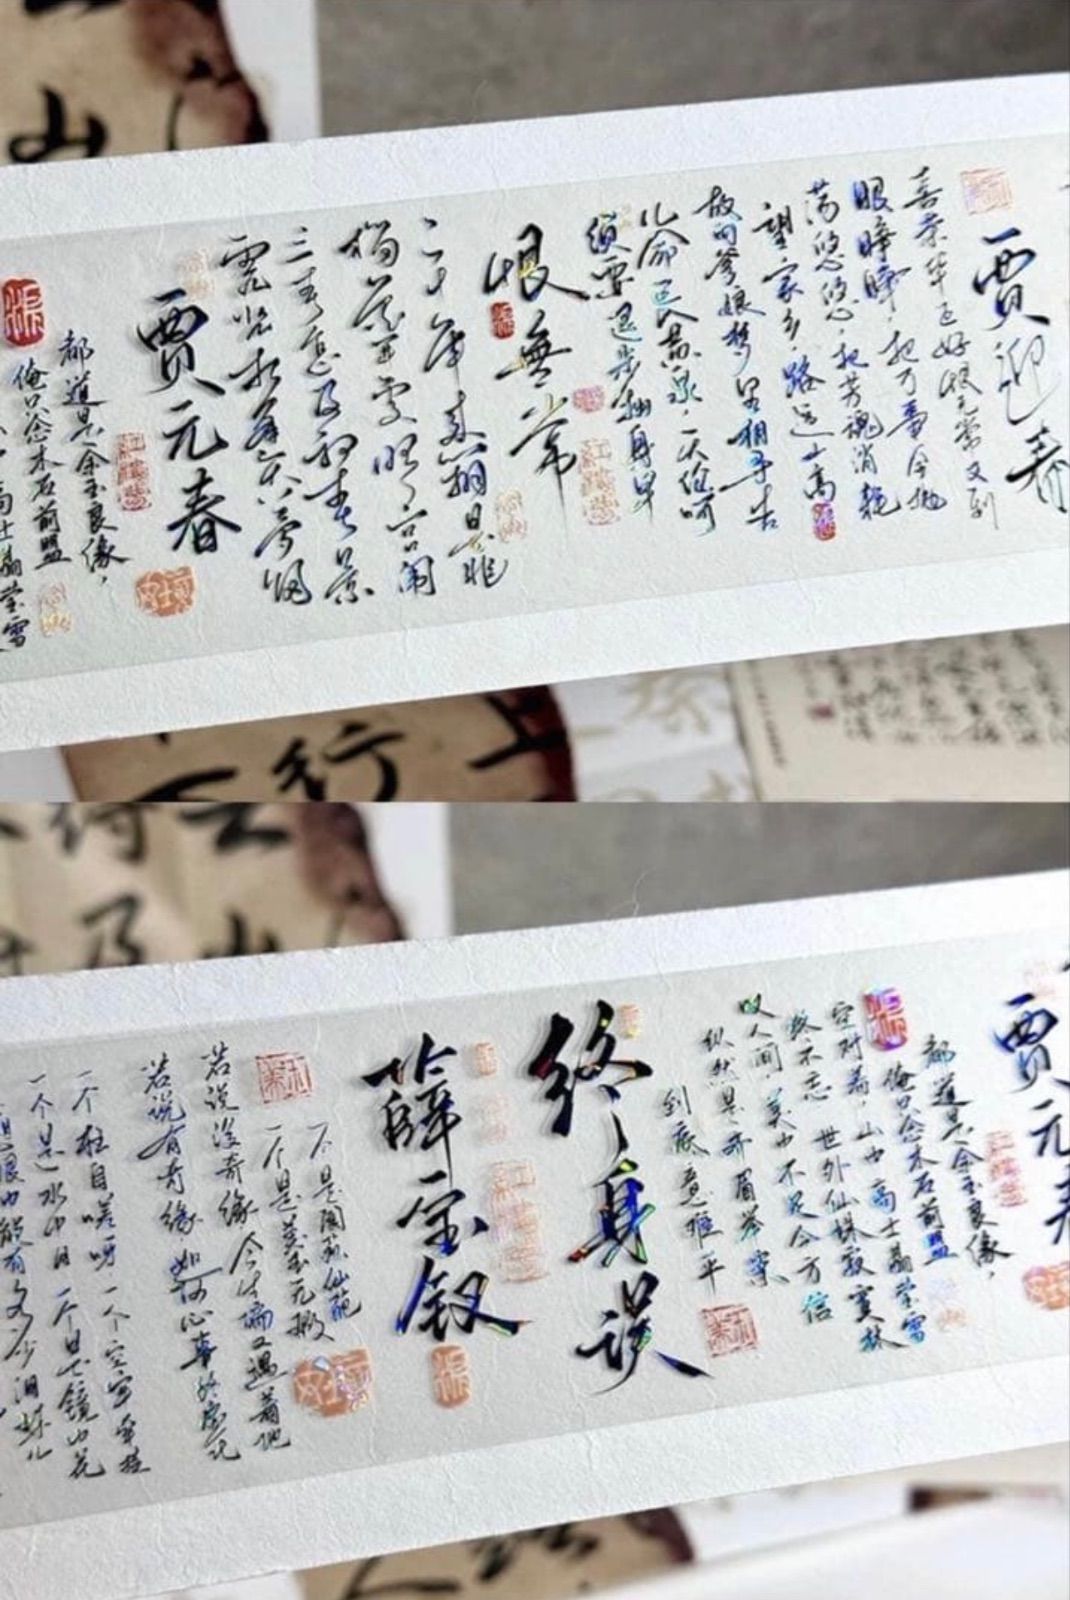 賈迎春
喜荣华正好恨无常又到
眼睁睁,把万事全抛
荡悠悠,把芳魂消耗
望家乡,路远山高
故向爹娘梦里相寻告
儿命已入黄泉,天伦呵
须要退步抽身早
恨無常
二十年来辨是非
榴花开处照宫闱
三春怎及初春景
虎兕相逢大梦归
賈元春
都道是金玉良缘,
俺只念木石前盟
高士晶莹雪
賈元春
都道是金玉良缘,
俺只念木石前盟
空对着,山中高士晶莹雪
终不忘 世外仙姝寂寞林
叹人间,美中不足今方信
纵然是齐眉举案
到底意难平
终身误
薛宝钗
一个是阆苑仙葩
一个是美玉无瑕
若说没奇缘 今生偏又遇着他
若说有奇缘 如何心事终虚化
一个枉自嗟呀,一个空劳牵挂
一个是水中月 一个是镜中花
眼中能有多少泪珠儿